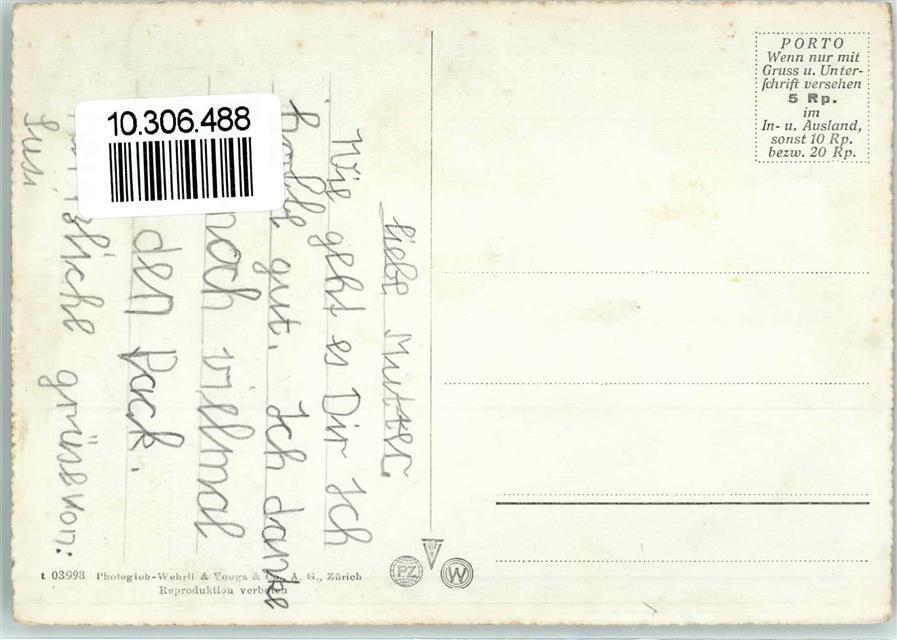 10.306.488
liebe Mutter.
Wie geht es Dir Ich
hoffe gut. Ich danke
noch vielmal
den Pack.
grüse von:
Susi
PORTO
Wenn nur mit
Gruss u. Unter-
schrift versehen
5 Rp.
im
In- u. Ausland,
sonst 10 Rp.
bezw. 20 Rp.
PZ
V
W
t 03998 Photoglob-Wehrli & Vouga & Co., A. G., Zürich
Reproduktion verboten